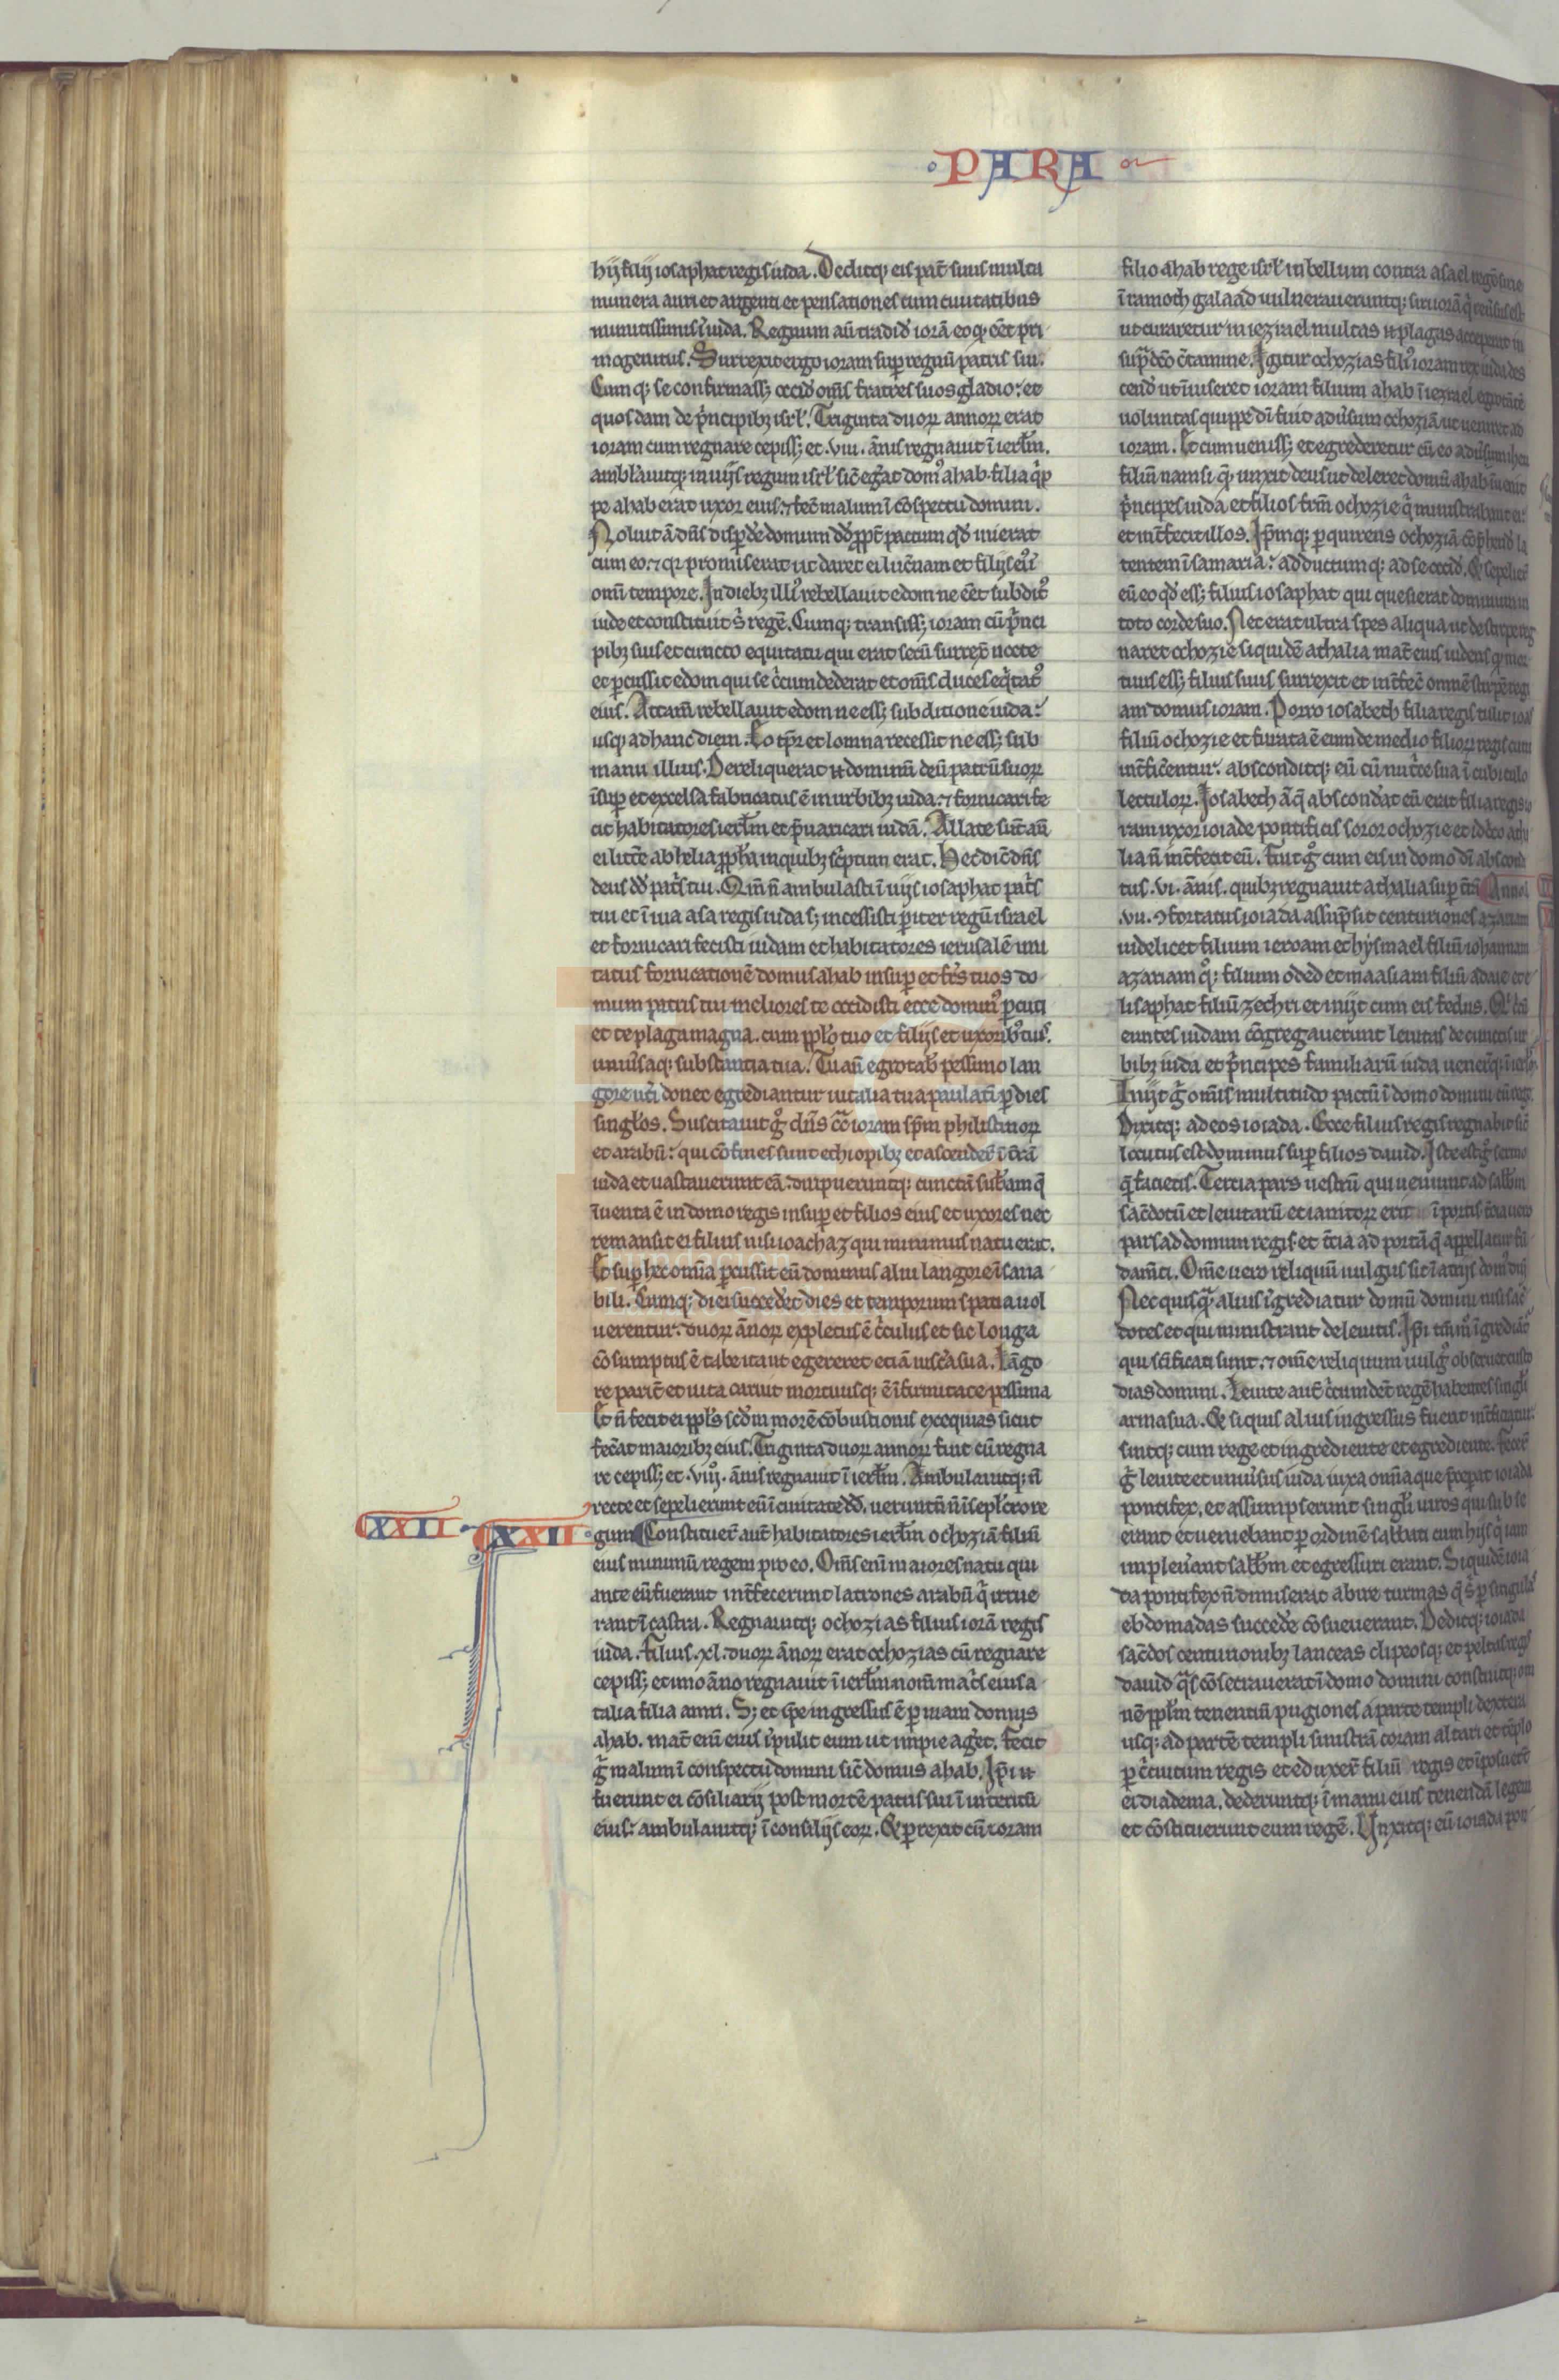 PARA
hij filij iosaphat regis iuda. Deditq; eis pat̄ suus multa
munera auri et argenti et pensationes cum ciuitatibus
munitissimis ī iuda. Regnum aū tradid̄ iorā eo q; eēt pri
mogenitus. Surrexit ergo ioram sup regnū patris sui.
Cumq; se confirmass; occid̄ om̄s fratres suos gladio: et
quosdam de p̄ncipibz isrl'. Triginta duoꝝ annoꝝ erat
ioram cum regnare cepiss; et .viii. ānis regnauit ī ierl̄m.
ambl'auitq; in uijs regum isrl' sic̄ eḡat dom᷒ ahab. filia q̄p
pe ahab erat uxor eius. ⁊ fec̄ malum ī cōspectu domini.
Noluit ā dn̄s disp̄de domum dd̄ ꝓpt̄ pactum qd̄ inierat
cum eo. ⁊ qꝛ promiserat ut daret ei luc̄nam et filijs ei᷒
omi tempore. In diebz illi᷒ rebellauit edom ne eēt subdit᷒
iude et constituit s̄ regē. Cumq; transiss; ioram cū p̄nci
pibz suis et cuncto equitatu qui erat secū surrex̄ nocte
et ꝑcussit edom qui se c̄cumdederat et om̄s duces eq̄tat᷒
eius. Attam̄ rebellauit edom ne ess; sub ditione iuda:
usq; ad hanc diem. Eo tp̄r et lomna recessit ne ess; sub
manu illius. Dereliquerat n̄ dominū deū patrū suoꝝ
īsup et excelsa fabricatus ē in urbibz iuda. ⁊ fornicari fe
cit habitatores ierl̄m et p̄uaricari iudā. Allate sūt aū
ei litt̄e ab helia ꝓph̄a in quibz sc̄ptum erat. Hec dic̄ dn̄s
deus dd̄ pat̄s tui. Qm̄ n̄ ambulasti ī uijs iosaphat pat̄s
tui et ī uia asa regis iuda s; incessisti ꝑ iter regū israel
et fornicari fecisti iudam et habitatores ierusalē imi
tatus fornicationē domus ahab insup et fr̄s tuos do
mum patris tui meliores te occidisti ecce domin᷒ ꝑcuti
et te plaga magna. cum ppl'o tuo et filijs et uxorib᷒ tuis.
uniū̄saq; substantia tua. Tu aū egrotab' pessimo lan
gore ut̄i donec egrediantur uitalia tua paulatī ꝑ dies
singl'os. Suscitauit g̊ dn̄s cōt̄ ioram sp̄m philistinoꝝ
et arabū: qui cōfines sunt ethiopibz et ascender̄ ī t̄rā
iuda et uastauerunt eā. diripueruntq; cunctā subst̄am q̄
īuenta ē in domo regis insup et filios eius et uxores nec
remansit ei filius nisi ioachaz qui minimus natu erat.
Et sup hec om̄ia ꝑcussit eū dominus alui langore īsana
bili. Cumq; diei succed̄et dies et temporum spatia uol
uerentur. duoꝝ ānoꝝ expletus ē c̄culus et sic longa
cōsumptus ē tabe ita ut egereret etiā uisc̄a sua. Lāgo
re parit̄ et uita caruit mortuusq; ē ī firmitate pessima
Et n̄ fecit ei ppl's scd̄m morē cōbustionis exequias sicut
fec̄at maioribz eius. Triginta duoꝝ annoꝝ fuit cū regna
re cepiss; et .viii᷒. ānis regnauit ī ierl̄m. Ambulauitq; n̄
recte et sepelierunt eū ī ciuitate dd̄. ueruntū n̄ ī sepl'cro re
XXII XXII gum Constituer̄ aūt habitatores ierl̄m ochoziā filiū
eius minimū regem pro eo. Om̄s eni maiores natu qui
ante eū fuerant int̄fecerunt latrones arabū q̄ irrue
rant ī castra. Regnauitq; ochozias filius iorā regis
iuda. Filius .xl. duoꝝ ānoꝝ erat ochozias cū regnare
cepiss; et uno āno regnauit ī ierl̄m nom̄ mat̄s eius a
talia filia amri. S; et ip̄e ingressus ē ꝑ uiam domus
ahab. mat̄ eni eius īpulit eum ut impie aḡet. Fecit
g̊ malum ī conspectu domini sic̄ domus ahab. Ip̄i n̄
fuerunt ei cōsiliarij post mortē patris sui ī interitū
eius: ambulauitq; ī consilijs eoꝝ. Et ꝑrexit cū ioram
filio ahab rege isrl' in bellum contra asael regē sirie
ī ramoth galaad uulnerauerūntq; siri iorā q̄ reūsus est
ut curaretur in iezrael multas n̄ plagas acceperat in
sup̄dc̄o c̄tamine. Igitur ochozias fili᷒ ioram rex iuda des
cend̄ ut īuiseret ioram filium ahab ī iezrael egrotātē
uoluntas quippe dī fuit adūsum ochoziā ut ueniret ad
ioram. Et cum ueniss; et egrederetur cū eo adūsum iheu
filiū namsi q̄; unxit deus ut deleret domū ahab īuenit
p̄ncipes iuda et filios frm̄ ochozie q̄ ministrabant ei:
et int̄fecit illos. Ip̄mq; ꝑquirens ochoziā cōp̄hend̄ la
tentem ī samaria: adductumq; ad se occid̄. Et sepelier̄
eū eo qd̄ ess; filius iosaphat qui quesierat dominum in
toto corde suo. Nec erat ultra spes aliqua ut de stirpe reg
naret ochozie siquidē athalia mat̄ eius uidens q̄ mor
tuus ess; filius suus surrexit et int̄fec̄ omnē stirpē regi
am domus ioram. Porro iosabeth filia regis tulit ioas
filiū ochozie et furata ē eum de medio filioꝝ regis cum
int̄ficentur. absconditq; eū cū nut̄ce sua ī cubiculo
lectuloꝝ. Iosabeth ā q̄ abscond̄at eū erat filia regis io
ram uxor ioiade pontificis soror ochozie et idc̄o atha
lia n̄ int̄fecit eū. Fuit g̊ cum eis in domo dī abscond
tus .vi. ānis. quibz regnauit athalia sup t̄rā Anno
.vii. ꝯfortatus ioiada assūpsit centuriones azariam
uidelicet filium ieroam et hysmael filiū iohannam
azariam q̊; filium obed et maasiam filiū adaie et e
lisaphat filiū zechri et inijt cum eis fedus. Qi cū
euntes iudam cōgregauerunt leuitas de cunctis ur
bibz iuda et p̄ncipes familiarū iuda ueneīq; ī ierl̄m
Inijt g̊ om̄is multitudo pactū ī domo domini cū rege
Dixitq; ad eos ioiada. Ecce filius regis regnabit sic̄
locutus est dominus sup filios dauid. Iste est g̊ sermo
q̄ facietis. Tercia pars uestrū qui ueniunt ad sabb̄m
sac̄dotū et leuitarū et ianitoꝝ erit ī portis t̄cia uero
pars ad domum regis et t̄cia ad portā q̄ appellatur fū
dam̄ti. Om̄e uero reliquū uulgus sit ī atrijs dom᷒ dn̄i
Nec quisq̄; alius īgrediatur domū domini nisi sac̄
dotes et qui ministrant de leuitis. Ip̄i tm̄m᷒ īgrediāt
qui sc̄ificati sunt. ⁊ om̄e reliquum uulg᷒ obseruet custo
dias domini. Leuite aut̄ c̄cumdēt regē habentes singl'i
arma sua. Et si quis alius ingressus fuerit int̄ficiatur.
sintq; cum rege et ingrediente et egrediente. Fecer̄
g̊ leuite et uniūsus iuda iuxa om̄ia que p̄ceperat ioiada
pontifex. et assumpserunt singl'i uiros qui sub se
erant et ueniebant ꝑ ordinē sabbati cum hijs q̄ iam
impleūant sabb̄m et egressuri erant. Siquidē ioia
da pontifex n̄ dimiserat abire turmas q̄ s̄ ꝑ singulas
ebdomadas succed̄e cōsueuerant. Deditq; ioiada
sac̄dos centurionibz lanceas clipeosq; et peltas regis
dauid q̄s cōsecrauerat ī domo domini constituitq; om
nē ppl'm tenentiū pugiones a parte templi dextera
usq; ad partē templi sinistrā coram altari et tēplo
ꝑ c̄cuitum regis et eduxer̄ filiū regis et īposuer̄t
ei diadema. dederuntq; ī manu eius tenendā legem
et cōstituerunt eum regē. Vnxitq; eū ioiada pon